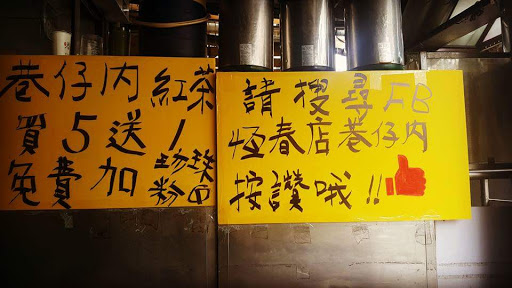 巷仔内紅茶
買5送1
免費加珍珠
粉圓
請搜尋FB
恆春店巷仔内
按讚哦!!